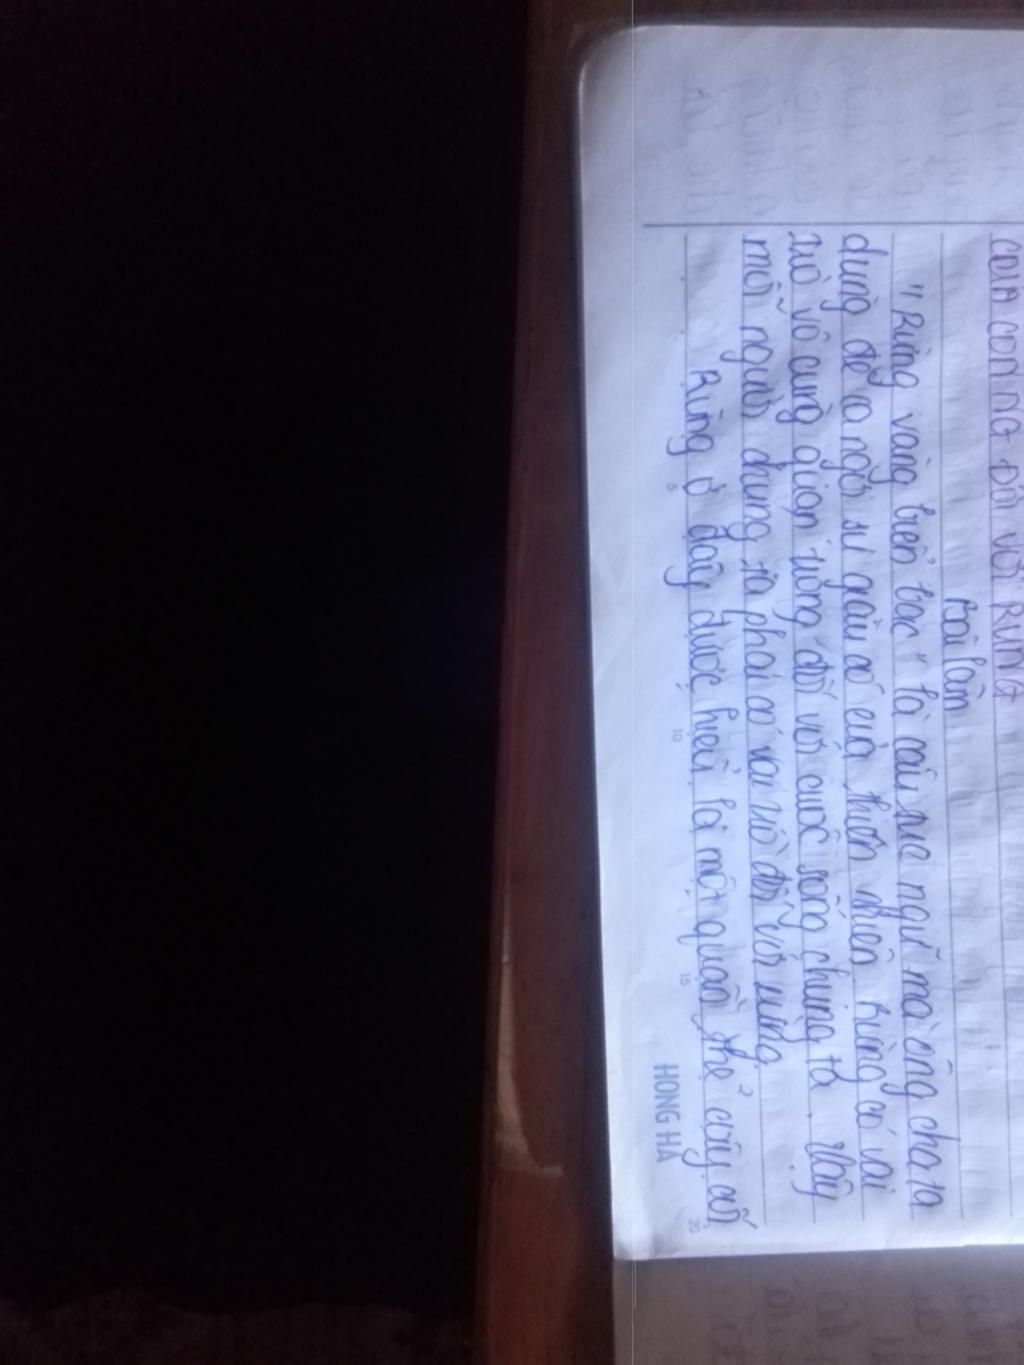 CỦA CON NG ĐỐI VỚI RỪNG
Bài làm
"Rừng vàng biển bạc" là câu ngữ mà ông cha ta
dùng để ca ngợi sự giàu có của thiên nhiên. Rừng có vai
trò vô cùng quan trọng đối với cuộc sống chúng ta. Vậy
mỗi người chúng ta phải có vai trò đối với rừng.
Rừng ở đây được hiểu là một quần thể cây cối
5 10 15 20
HONG HÀ